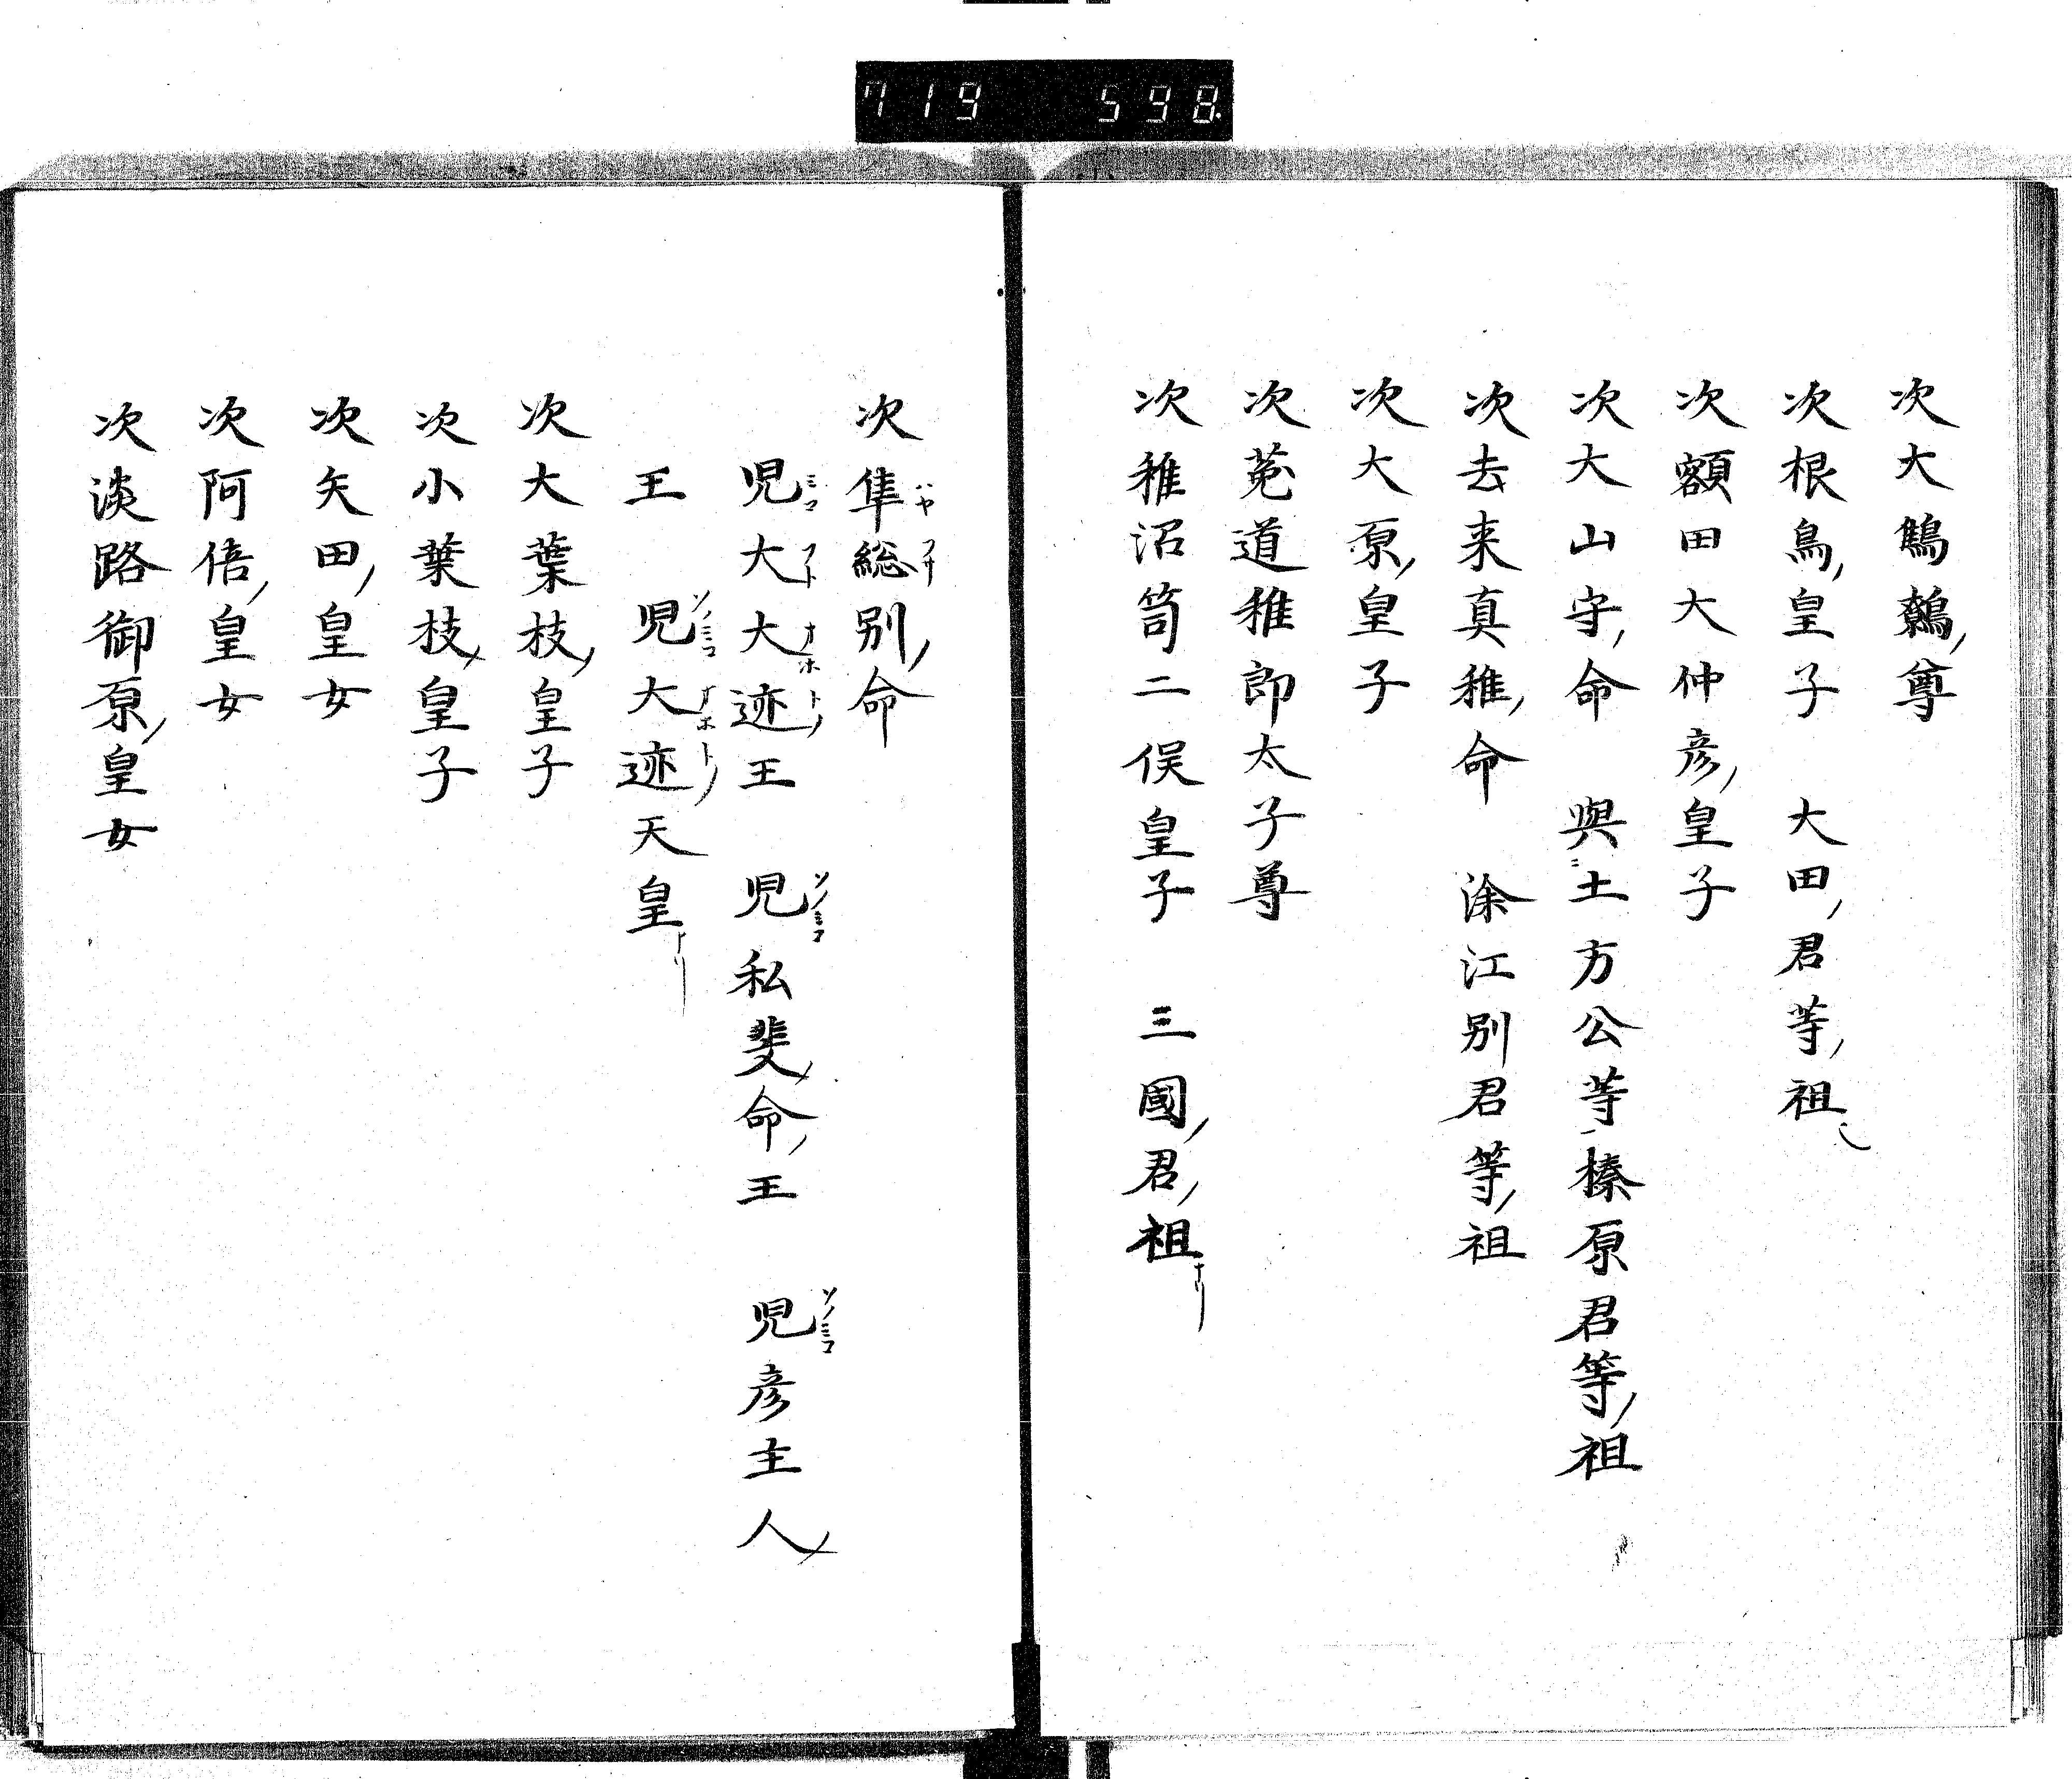 719 598
次大鷦鷯ノ尊
次根鳥ノ皇子 大田ノ君等ノ祖也
次額田大仲彦ノ皇子
次大山守ノ命 與ニ土方公等榛原君等ノ祖
次去来真稚ノ命 涂江別君等ノ祖
次大原ノ皇子
次菟道稚郎太子尊
次稚沼笥二俣皇子 三國ノ君ノ祖ナリ
次隼総別ノ命
児大大迹王 児私斐ノ命ノ王 児彦主人ノ
王 児大迹天皇ナリ
次大葉枝ノ皇子
次小葉枝ノ皇子
次矢田ノ皇女
次阿倍ノ皇女
次淡路御原ノ皇女